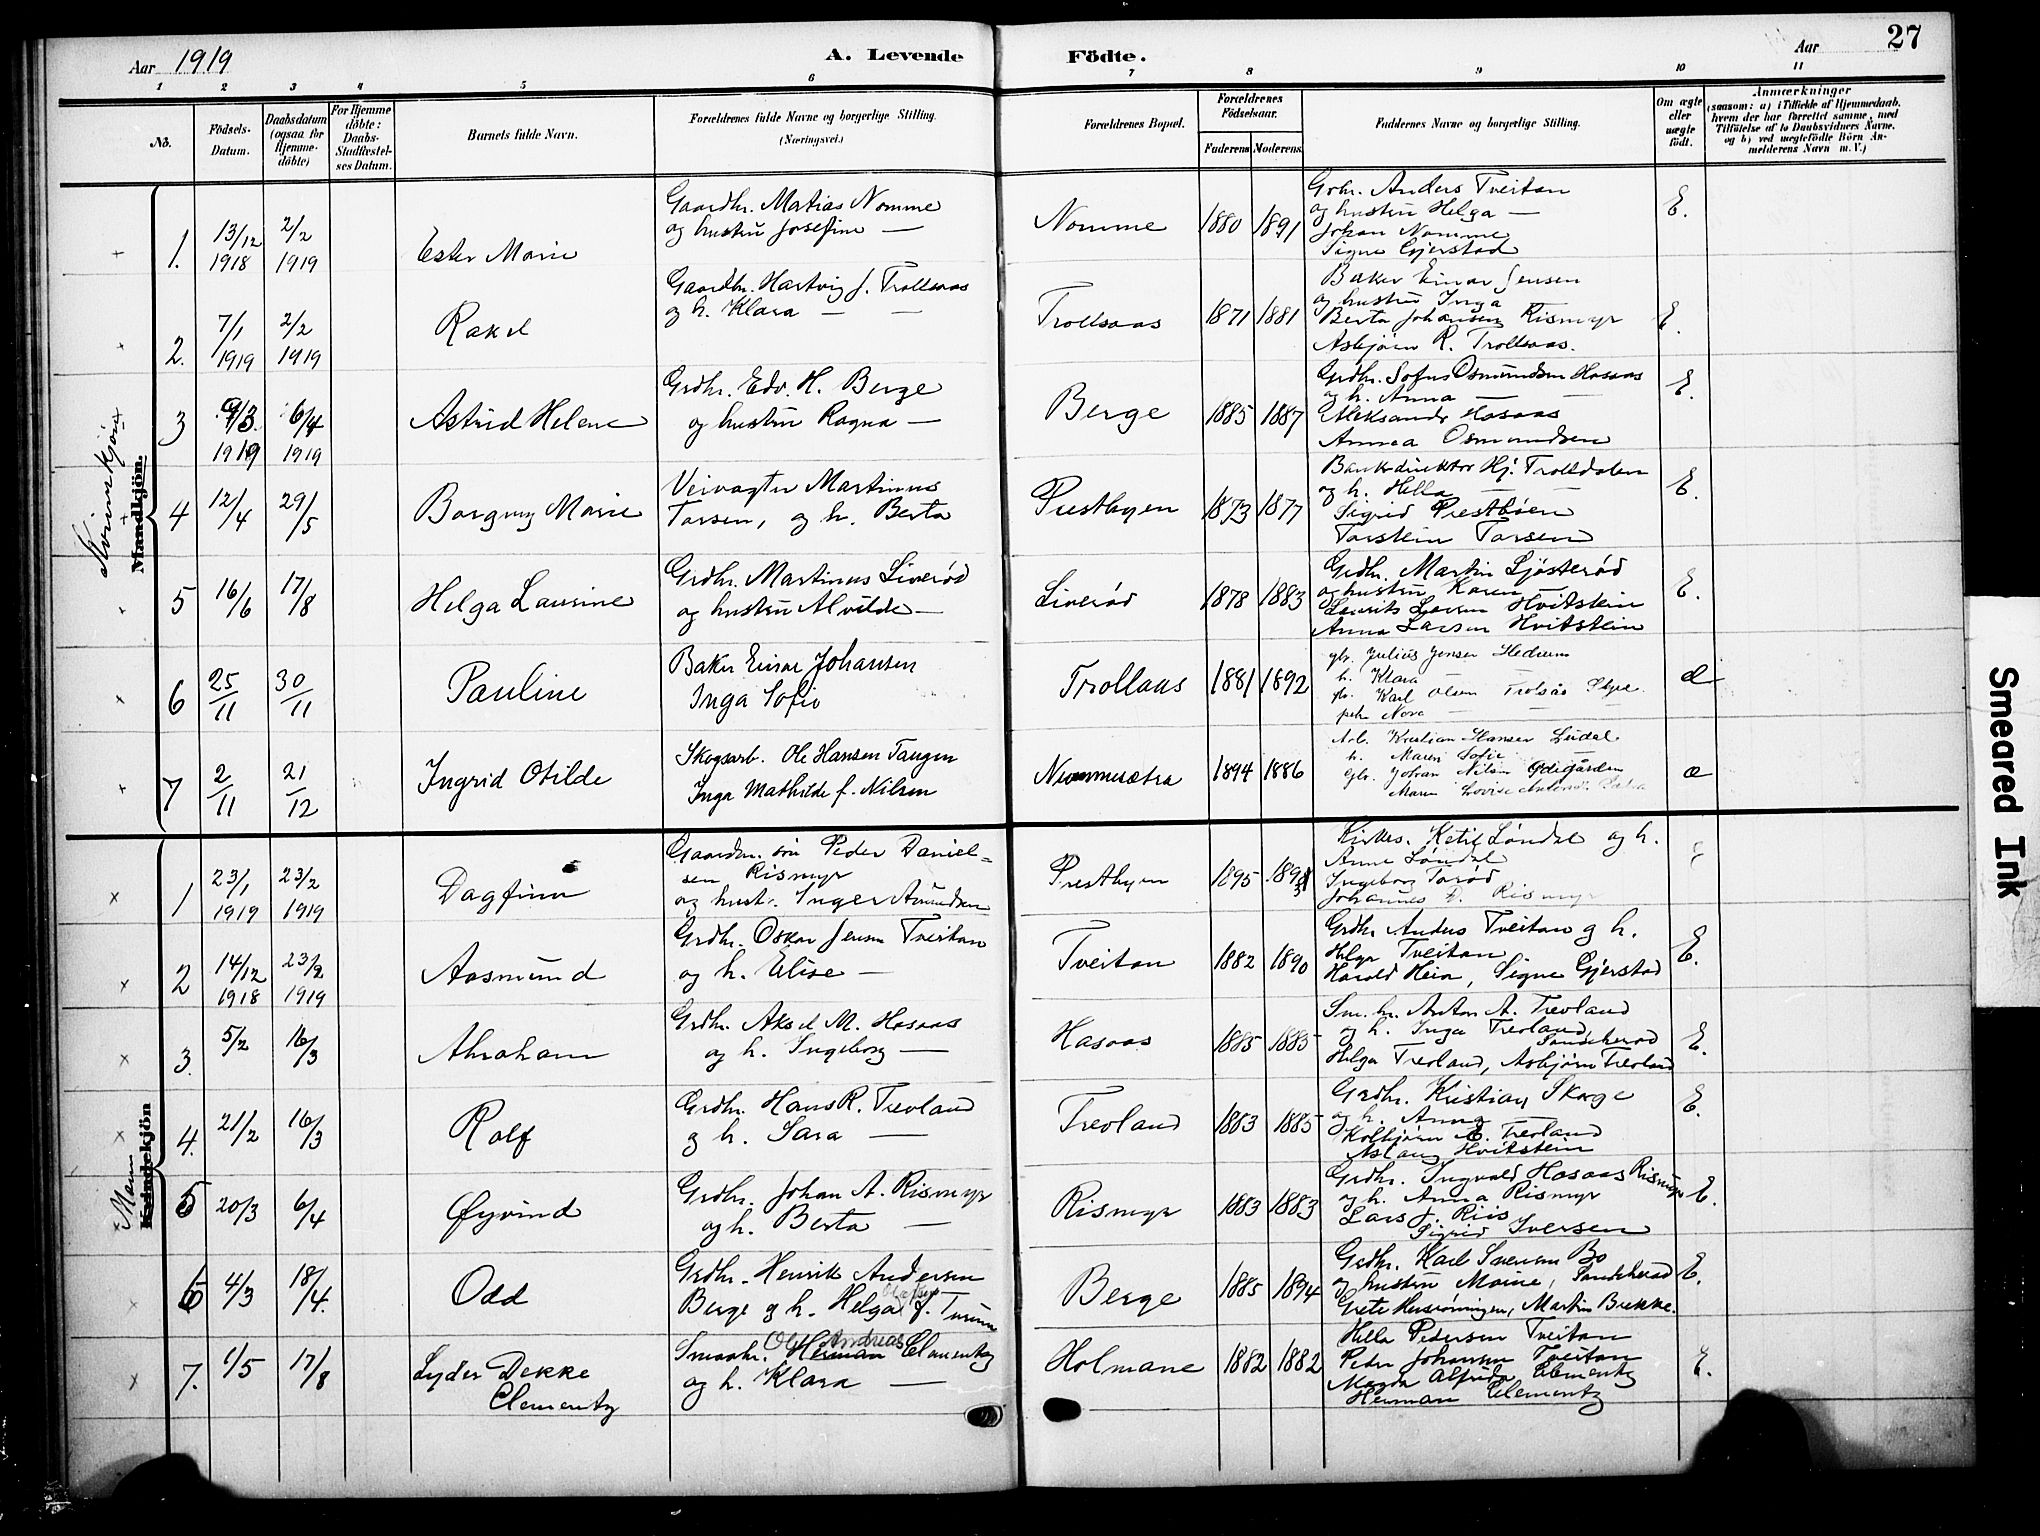 Aar 1919
A. Levende Födte.
Aar
27
1 2 3 4 5 6 7 8 9 10 11
No.
Födsels-Datum.
Daabsdatum (ogsaa for Hjemme-döbte)
For Hjemme döbte: Daabs-Stadfæstel-ses Datum.
Barnets fulde Navn.
Forældrenes fulde Navne og borgerlige Stilling. (Næringsvei.)
Forældrenes Bopæl.
Forældrenes Födselsaar.
Faderens Moderens
Faddernes Navne og borgerlige Stilling.
Om ægte eller uægte födt.
Anmærkninger
(saasom: a) i Tilfælde af Hjemmedaab,
hvem der har forrettet samme, med
Tilföielse af to Daabsvidners Navne,
og b) ved uægtefödte Börn An-
melderens Navn m. V.)
Kvinnekjön
Mandkjön.
1. 13/12 1918 2/2 1919 Ester Marie
Gaardbr. Matias Nomme
og hustru Josefine —
Nomme 1880 1891
Grbr. Anders Tveitan
og hustru Helga —
Johan Nomme
Signe Gjerstad
E.
2. 7/1 1919 2/2 1919 Rakel
Gaardbr. Hartvig J. Trollsaas
og h. Klara — —
Trollsaas 1871 1881
Baker Einar Jensen
og hustru Inga
Berta Johansen Rismyr
Asbjörn R. Trollsaas.
E.
3 9/3. 1919 6/4 1919 Astrid Helene
Grdbr. Edv. H. Berge
og hustru Ragna —
Berge 1885 1887
Grdbr. Sofus Osmundsen Hasaas
og h. Anna — —
Aleksander Hasaas
Annea Osmundsen
E.
4 12/4 29/5 Borgny Marie
Veivogter Martinus
Tarsen, og h. Berta
Prestbyen 1873 1877
Bankdirektör Hj. Trolldalen
og h. Hella — —
Sigrid Prestböen
Torstein Tarsen
E.
5 16/6 17/8 Helga Laurine
Grdbr. Martinus Liveröd
og hustru Alvilde —
Liveröd 1878 1883
Grdbr. Martin Ljösteröd
og hustru Karen
Laurits Larsen Hvitstein
Anna Larsen Hvitstein
E.
6 25/11 30/11 Pauline
Baker Einar Johansen
Inga Sofie
Trollaas 1881 1892
gbr. Julius Jensen Hedrum
h. Klara
gbr. Karl Olsen Trolsås
Nora
æ
7 2/11 21/12 Ingrid Otilde
Skogsarb. Ole Hansen Tangen
Inga Mathilde f. Nilsen
Nommesætra 1894 1886
Arb. Kristian Hansen
h. Maren Sofie
gbr. Johan Nilsen Ödegården
Maren Lovise
æ
Mann
Kvindekjön
1 23/1 1919 23/2 1919 Dagfinn
Gaardm. sön Peder Daniel-
sen Rismyr
og hustr. Inger Amundsen
Prestbyen 1895
Kirkes. Ketil Löndal og h.
Anne Löndal
Ingeborg Taröd
Johannes D. Rismyr
2 14/12 1918 23/2 1919 Aasmund
Grdbr. Oskar Jensen Tveitan
og h. Elise —
Tveitan 1882 1890
Grdbr. Anders Tveitan g h.
Helga Tveitan
Harald Heia, Signe Gjerstad
E.
3. 5/2 16/3 Abraham
Grdbr. Aksel M. Hasaas
og h. Ingeborg —
Hasaas 1885 1885
Sm. br. Anton A. Trevland
og h. Inga Trevland,
Sandeherad
Helga Trevland, Asbjörn Trevland
E.
4. 21/2 16/3 Rolf
Grdbr. Hans R. Trevland
g h. Sara —
Trevland 1883 1885
Grdbr. Kristian Skorge
og h. Anna
Kolbjörn E. Trevland
Aslaug Hvitstein
E.
5 20/3 6/4 Øyvind
Grdbr. Johan A. Rismyr
og h. Berta —
Rismyr 1883 1883
Grdbr. Ingvald Hasaas Rismyr
og h. Anna Rismyr
Lars J. Riis
Sigrid Iversen
E.
6 4/3 18/4. Odd
Grdbr. Henrik Andersen
Berge g h. Helga f.
Berge 1885 1894
Grdbr. Karl Svensen Bo
og hustru Marie, Sandeherad
Grete, Martin Brekke.
E.
7. 1/5 17/8 Lyder Dekke
Clementz
Smaabr. Ole Andreas Herman Clementz
og h. Klara —
Holmane 1882 1882
Hella Pedersen Tveitan
Peder Johansen Tveitan
Magda Alfrida Clementz
Herman Clementz
E.
Smeared Ink